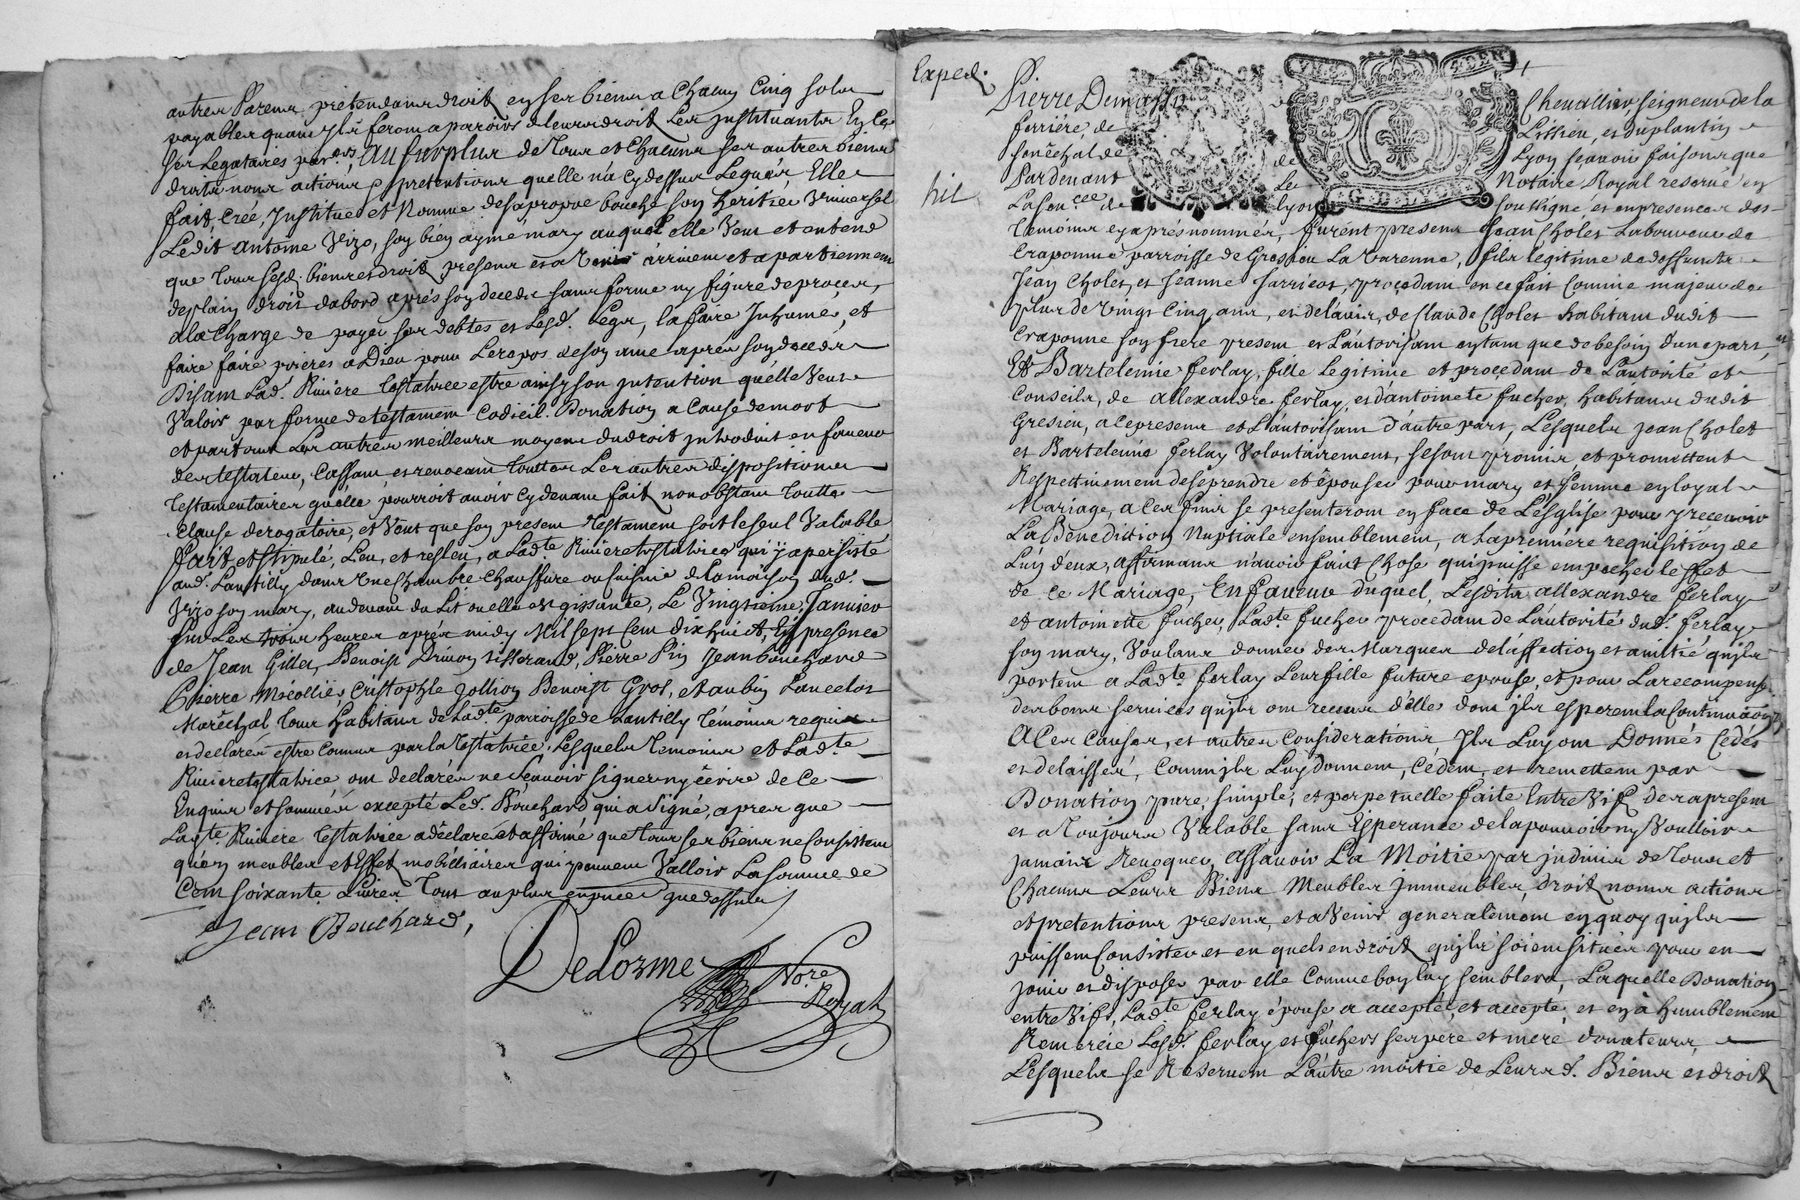 autres Parens pretendans droit en ses biens a Chacun Cinq sols
payables quand Ils feront aparoirs de leurs droit Les Instituants En Ce
ses Legataires par^ers, Au surplus de Tous et Chacuns ses autres biens
droits noms actions & pretentions quelle n'a Cydessus Legués, Elle
fait, Créé, Institue et Nomme desapropre bouche son heritier Universel
Ledit antoine Vizo, son bien aymé mary auquel elle Veut et entend
que Tous sesd. biens et droit presens et a Venir arrivent et apartiennent
deplain droit dabord aprés son deceds sans forme ny figure de procés,
a la Charge de payer ses debtes et Lesd. Legs, la faire Inhumer, et
faire faire prieres a Dieu pour Lerepos deson ame aprés son decéds
Disant Lad. Riviere Testatrice estre ainsy son intention quélle Veut
Valoir par forme de testament Codicil. Donation a Cause de mort
et par tous Les autres meilleurs moyens du droit introduit en faveur
des testateur, Cassant, et revocant Touttes Les autres dispositions
Testamentaires quélle pourroit avoir Cydevant fait nonobstant Toutte
Clause derogatoire, et Veut que son present Testament soit le seul Valable
Fait, et stipulé, Leu, et resleu, a Lad^te Riviere testatrice qui ÿ a persisté
aud. Lantilly dans Une Chambre Chauffure ou Cuisine de la maison dud.
Vizo son mary, au devant du Lit ou elle est gissante, Le Vingtieme Janvier
sur Les trois heures aprés midy Mil sept Cent dix huict, En presence
de Jean Gilles, Benoist Drivon tisserand, Pierre Pin Jean bouchard
Pierre Mocollier Cristophle Jollion Benoist Gros, et aubin Lancelot
Maréchal Tous Habitans de Lad^te parroisse de Lantilly Témoins requis
et declarés estre Connus par la Testatrice, Lesquels Temoins et Lad^te
Riviere testatrice ont declarés ne Scavoir signer ny écrire de Ce
Enquis et sommés excepté Led. Bouchard qui a signé, apres que
Lad^te Riviere Testatrice a déclaré et affirmé que Tous ses biens ne Consistent
qu'en meubles et Effet mobilliaires qui peuvent Valloir La somme de
Cent soixante Livres Tout au plus que dessus
Jean Bouchard,
DeLorme No^re
Royal
Exped.
Pierre Demassso Chevallier, seigneur de la
ferriére, de Lissieu, et du plantin
senéchal de Lyon scavoir faisons que
Pardevant Le Notaire Royal reservé en
La sen^cee de Lyon soussigné, et en presence des
hic
Temoins cyaprés nommés, furent presens Jean Cholet Laboureur de
Craponne parroisse de Gresieu La Varenne, fils legitime de deffunts
Jean Cholet, et Jeanne Jarricot, procedant en ce fait Comme majeur de
plus de Vingt Cinq ans, et de l'avis, de Claude Cholet habitant dudit
Craponne son frere present et L'autorisant en tant que de besoin d'une part,
Et Bartelemie ferlay, fille Legitime et procedant de L'autorité et
Conseils, de allexandre ferlay, et d'antoinete fucher, habitans dudit
Gresieu, a Ce presens et L'autorisant d'autre part, Lesquels Jean Cholet
et Bartelemie ferlay Volontairement, se sont promis et promettent
Respectivement de se prendre et épouser pour mary et femme en loyal
Mariage, a Ces fins se presenteront en face de L'ésglise pour y recevoir
La Bénediction Nuptiale ensemblement, a La premiére requisition de
L'un d'eux, affirmans n'avoir fait Chose qui puisse empecher le effet
de Ce Mariage, En faveur duquel, Lesdits allexandre ferlay
et antoinette fucher, Lad^te fucher procedant de L'autorité dud. ferlay
son mary, Voulans donner des Marques de l'affection et amitié qu'ils
portent a Lad^te ferlay Leur fille future epouse, et pour La recompense
des bons services qu'ils ont receus d'elle, dont ils esperent la Continuation
A Ces Causes, et autres Considerations, Ils Luy ont Donnés Cedés
et delaissés, Comm'ils Luy donnent, Cédent, et remettent par
Donation pure, simple, et perpetuelle faite Entre Vifs des apresent
et a Toujours Valable sans Esperance de la pouvoir ny Voulloir
jamais Revoquer, assavoir La Moitié par indivis de Tous et
Chacuns Leurs Biens Meubles immeubles droit noms actions
et pretentions presens, et a Venir généralement en quoy qu'ils
puissent Consister et en quels endroit qu'ils soient situés pour en
jouir et disposer par elle Comme bon luy semblera, Laquelle Donation
entre Vifs, Lad^te ferlay épouse a accepté, et accepte, et en à humblement
Remercié Lesd. ferlay et fuchers ses pere et mere donateurs,
Lesquels se Reservent L'autre moitié de Leurs d. Biens et droit